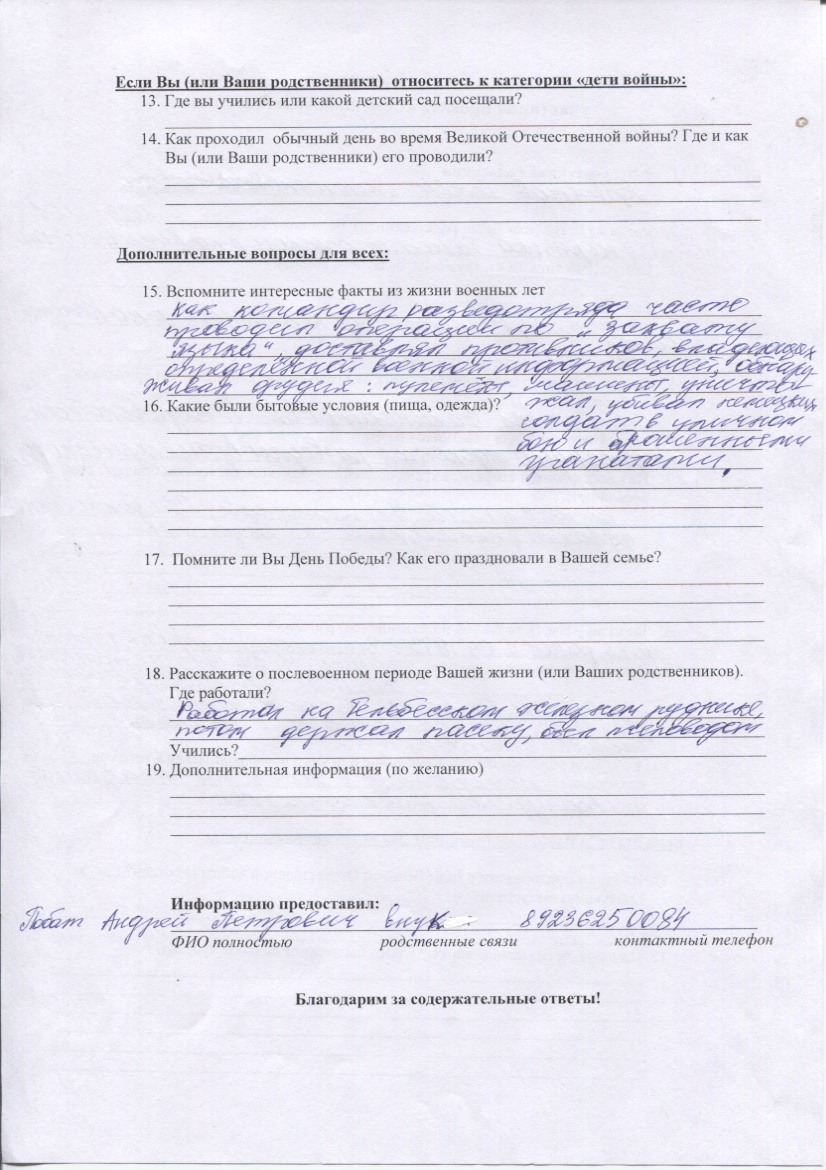 Если Вы (или Ваши родственники) относитесь к категории «дети войны»:
13. Где вы учились или какой детский сад посещали?
14. Как проходил обычный день во время Великой Отечественной войны? Где и как
Вы (или Ваши родственники) его проводили?
Дополнительные вопросы для всех:
15. Вспомните интересные факты из жизни военных лет
Как командир разведотряда часто
проводил операции по „захвату
языка", доставлял противников, владеющих
определённой военной информацией, обнару
живал орудия: пулемёт, миномёт, уничто-
16. Какие были бытовые условия (пища, одежда)?
жал, убивал немецких
солдат в уличном
бою и брошенными
гранатами.
17. Помните ли Вы День Победы? Как его праздновали в Вашей семье?
18. Расскажите о послевоенном периоде Вашей жизни (или Ваших родственников).
Где работали?
Работал на Тельбесском железном руднике,
потом держал пасеку, был пчеловодом
Учились?
19. Дополнительная информация (по желанию)
Информацию предоставил:
Андрей Петрович внук 89236250084
ФИО полностью родственные связи контактный телефон
Благодарим за содержательные ответы!